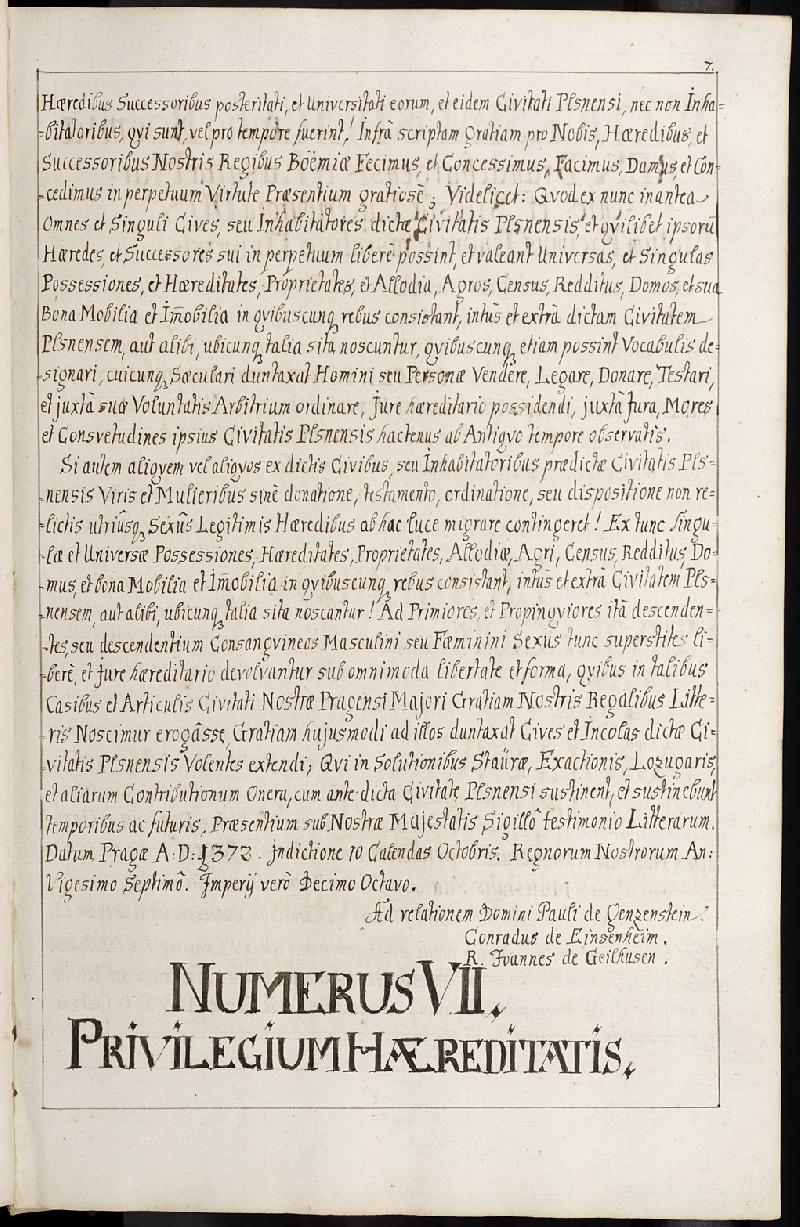 7.
Hæredibus Successoribus posteritati, et Universitati eorum, et eidem Civitati Plsnensi, nec non Inha=
=bitatoribus, qvi sunt, vel pro tempore fuerint! Infrà scriptam Gratiam pro Nobis, Hæredibus, et
Successoribus Nostris Regibus Böemiæ Fecimus, et Concessimus, Facimus, Damus et Con=
=cedimus in perpetuum Virtute Præsentium gratiosè; Videlicet: Qvod ex nunc inantea
Omnes et Singuli Cives, seu Inhabitatores dictæ Civitatis Plsnensis, et qvilibet ipsorū
Hæredes, et Successores sui in perpetuum liberè possint, et valeant Universas, et Singulas
Possessiones, et Hæreditates, Proprietates, et Allodia, Agros, Census, Redditus, Domos, et sua
Bona Mobilia et Im̄obilia in qvibuscunq, rebus consistant, intùs et extrà dictam Civitatem
Plsnensem, aut alibi, ubicunq, talia sita noscuntur, qvibuscunq, etiam possint Vocabulis de=
=signari, cuicunq, Sæculari duntaxat Homini seu Personæ Vendere, Legare, Donare, Testari,
et juxtà suæ Voluntatis Arbitrium ordinare, Jure hæreditario possidendi, juxtà Jura, Mores
et Consvetudines ipsius Civitatis Plsnensis hactenus ab Antiqvo tempore observatis.
Si autem aliqvem vel aliqvos ex dictis Civibus, seu Inhabitatoribus prædictæ Civitatis Pls=
=nensis Viris et Mulieribus sinè donatione, testamento, ordinatione, seu dispositione non re=
=lictis utriusq, Sexûs Legitimis Hæredibus ab hac luce migrare contingeret! Ex tunc Singu=
læ et Universæ Possessiones, Hæreditates, Proprietates, Allodiæ, Agri, Census, Redditus, Do=
=mus, et bona Mobilia et Im̄obilia in qvibuscunq, rebus consistant, intùs et extrà Civitatem Pls=
=nensem, aut alibi, ubicunq, talia sita noscantur! Ad Primiores, et Propinqviores ità descenden=
=tes, seu descendentium Consangvineas Masculini seu Fæminini Sexûs tunc superstites li=
berè, et Jure hæreditario devolvantur sub omnimoda libertate et forma, qvibus in talibus
Casibus et Articulis Civitati Nostræ Pragensi Majori Gratiam Nostris Regalibus Litte=
ris Noscimur erogâsse, Gratiam hujusmodi ad illos duntaxat Cives et Incolas dictæ Ci=
vitatis Plsnensis Volentes extendi; Qvi in Solutionibus Staüræ, Exactionis, Lozugaris,
et aliarum Contributionum Onera, cum ante dicta Civitate Plsnensi sustinent, et sustinebunt
temporibus ac futuris. Præsentium sub Nostræ Majestatis Sigillô testimonio Litterarum.
Datum Pragæ A: D: 1372. Indictione 10 Calendas Octobris. Regnorum Nostrorum An:
Vigesimo Septimô. Imperij verò Decimo Octavo.
Ad relationem Domini Pauli de Genzenstein.
Conradus de Einsenheim.
R. Joannes de Geilhusen.
NUMERUS VII.
PRIVILEGIUM HÆREDITATIS.